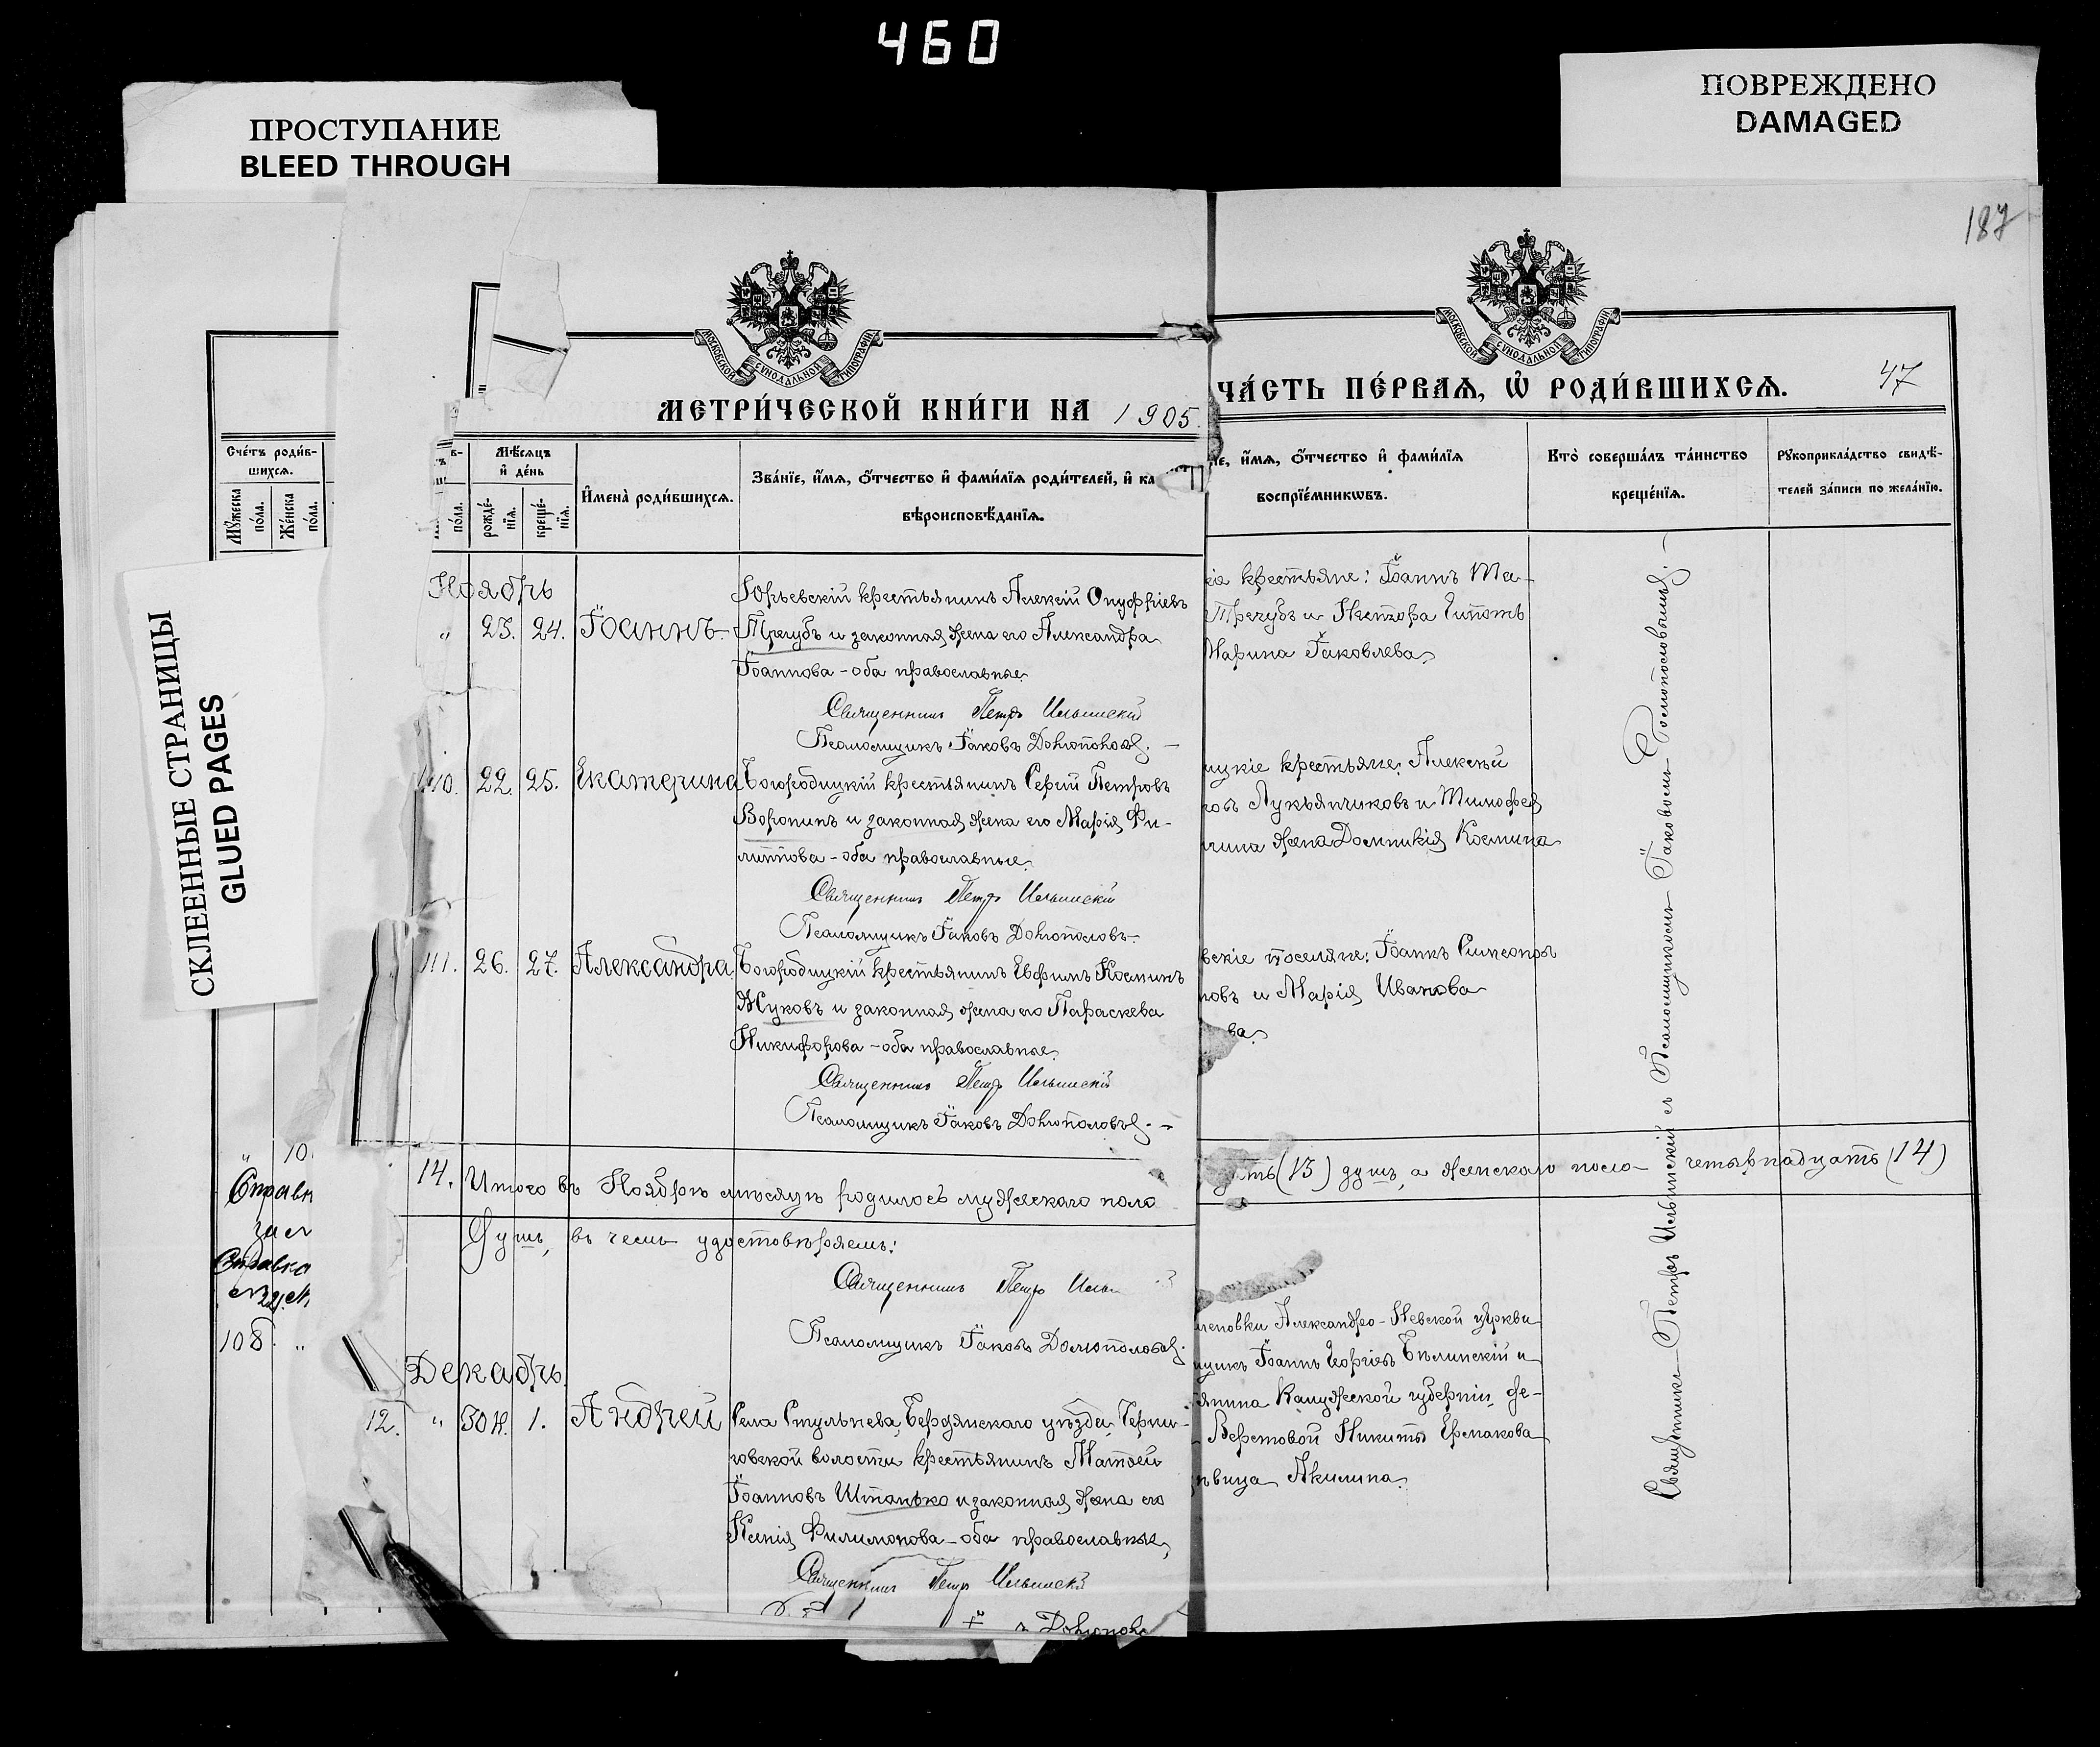 460
ПРОСТУПАНИЕ
BLEED THROUGH
ПОВРЕЖДЕНО
DAMAGED
СКЛЕЕННЫЕ СТРАНИЦЫ
GLUED PAGES
187
МОСКОВСКОЙ СѴНОДАЛЬНОЙ ТИПОГРАФІИ
МОСКОВСКОЙ СѴНОДАЛЬНОЙ ТИПОГРАФІИ
МЕТРИ́ЧЕСКОЙ КНИ́ГИ НА 1905.
ЧА́СТЬ ПЕ́РВАЯ, Ѡ РОДИ́ВШИХСЯ.
47
Сче́тъ роди́в-
шихся.
Мꙋжеска по́ла.
Же́нска по́ла.
Мѣ́сяцъ
и де́нь
рожде́-
нїя.
креще́-
нїя.
по́ла.
И҆мена̀ роди́вшихся.
Зва́нїе, и҆́мя, ѻ҆́тчество и҆ фами́лїя роди́телей, и҆ ка
вѣроисповѣ́данїя.
и҆́мя, ѻ҆́тчество и҆ фами́лїя
воспрїе́мникѡвъ.
Кто̀ соверша́лъ та́инство
креще́нїя.
Рꙋкоприкла́дство свидѣ́-
телей за́писи по жела́нїю.
Ноябрь
„ 23. 24. Іоаннъ
Юрьевскій крестьянинъ Алексій Онуфріевъ
Трегубъ и законная жена его Александра
Іоаннова - оба православные.
Священникъ Петръ Ильинскій
Псаломщикъ Іаковъ Долгополовъ.
крестьяне: Іоаннъ Ма-
Трегубъ и Нестора
Марина Іаковлева
110. 22. 25. Екатерина
Богородицкій крестьянинъ Сергій Петровъ
Воронинъ и законная жена его Марія Фи-
липпова - оба православные.
Священникъ Петръ Ильинскій
Псаломщикъ Іаковъ Долгополовъ.
ицкіе крестьяне: Алексѣй
Лукьянчиковъ и Тимофея
жена Домникія Космина
111. 26. 27. Александра
Богородицкій крестьянинъ Евфимъ Косминъ
Жуковъ и законная жена его Параскева
Никифорова - оба православные.
Священникъ Петръ Ильинскій
Псаломщикъ Іаковъ Долгополовъ.
вскіе поселяне: Іоаннъ Симеоновъ
новъ и Марія Иванова
ва.
14. Итого въ Ноябрѣ мѣсяцѣ родилось мужескаго пола
ть (13) душъ, а женскаго пола - четырнадцать (14)
душъ, въ чемъ удостовѣряемъ:
Священникъ Петръ Ильи
Псаломщикъ Іаковъ Долгополовъ.
Декабрь.
12. „ 30 н. 1. Андрей
Села Стульнева, Бердянскаго уѣзда, Черни-
говской волости крестьянинъ Матѳей
Іоанновъ Штанько и законная жена его
Ксенія Филимонова - оба православные,
Священникъ Петръ Ильинскій
Долгополо
Александро-Невской церкви
щикъ Іоаннъ Георгіевъ Бѣлинскій и
янина Калужской губерніи,
Никиты Ермакова
ѣвица Акилина.
Священникъ Петръ Ильинскій съ Псаломщикомъ Іаковомъ Долгополовымъ.
10
Справк
Справка
108. „